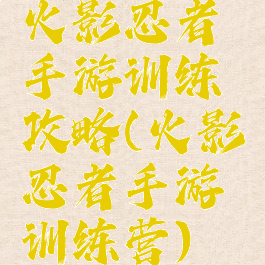 火影忍者
手游训练
攻略(火影
忍者手游
训练营)